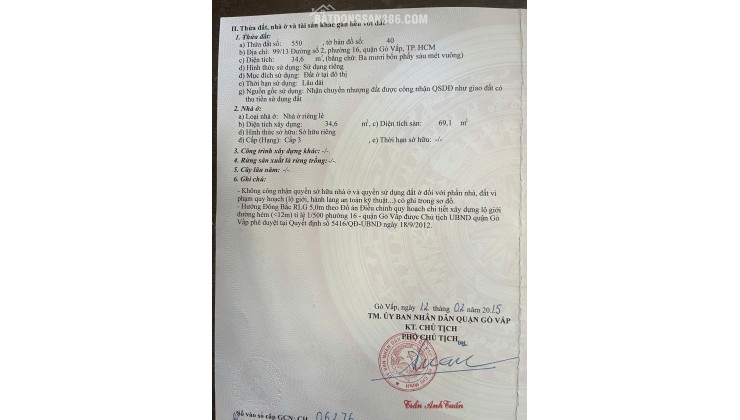 BATDONGSAN386.COM
II. Thửa đất, nhà ở và tài sản khác gắn liền với đất
1. Thửa đất:
a) Thửa đất số: 550 , tờ bản đồ số: 40
b) Địa chỉ: 99/13 Đường số 2, phường 16, quận Gò Vấp, TP. HCM
c) Diện tích: 34,6 m², (bằng chữ: Ba mươi bốn phẩy sáu mét vuông)
d) Hình thức sử dụng: Sử dụng riêng
đ) Mục đích sử dụng: Đất ở tại đô thị
e) Thời hạn sử dụng: Lâu dài
g) Nguồn gốc sử dụng: Nhận chuyển nhượng đất được công nhận QSDĐ như giao đất có
thu tiền sử dụng đất
2. Nhà ở:
a) Loại nhà ở: Nhà ở riêng lẻ
b) Diện tích xây dựng: 34,6 m², c) Diện tích sàn: 69,1 m²
d) Hình thức sở hữu: Sở hữu riêng
đ) Cấp (Hạng): Cấp 3 , e) Thời hạn sở hữu: -/-
3. Công trình xây dựng khác: -/-
4. Rừng sản xuất là rừng trồng: -/-
5. Cây lâu năm: -/-
6. Ghi chú:
- Không công nhận quyền sở hữu nhà ở và quyền sử dụng đất ở đối với phần nhà, đất vi
phạm quy hoạch (lộ giới, hành lang an toàn kỹ thuật...) có ghi trong sơ đồ.
- Hướng Đông Bắc RLG 5,0m theo Đồ án Điều chỉnh quy hoạch chi tiết xây dựng lộ giới
đường hẻm (<12m) tỉ lệ 1/500 phường 16 - quận Gò Vấp được Chủ tịch UBND quận Gò
Vấp phê duyệt tại Quyết định số 5416/QĐ-UBND ngày 18/9/2012.
Gò Vấp, ngày 12 tháng 02 năm 2015
TM. ỦY BAN NHÂN DÂN QUẬN GÒ VẤP
KT. CHỦ TỊCH
PHÓ CHỦ TỊCH
Trần Anh Tuấn
Số vào sổ cấp GCN: CH 06276